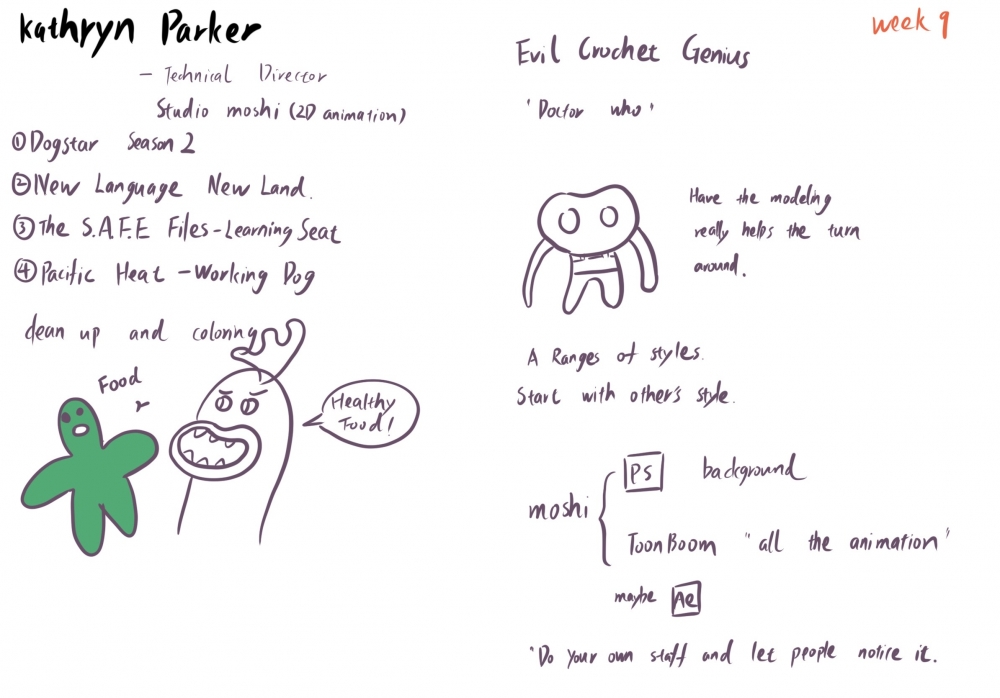 Kathryn Parker
- Technical Director
Studio moshi (2D animation)
①Dogstar Season 2
②New Language New Land.
③The S.A.F.E Files-Learning Seat
④Pacific Heat -Working Dog
clean up and coloring
Food
Healthy
Food!
week 9
Evil Crochet Genius
'Doctor who'
Have the modeling
really helps the turn
around.
A Ranges of styles.
Start with other's style.
moshi
PS background
ToonBoom "all the animation"
maybe Ae
"Do your own staff and let people notice it.